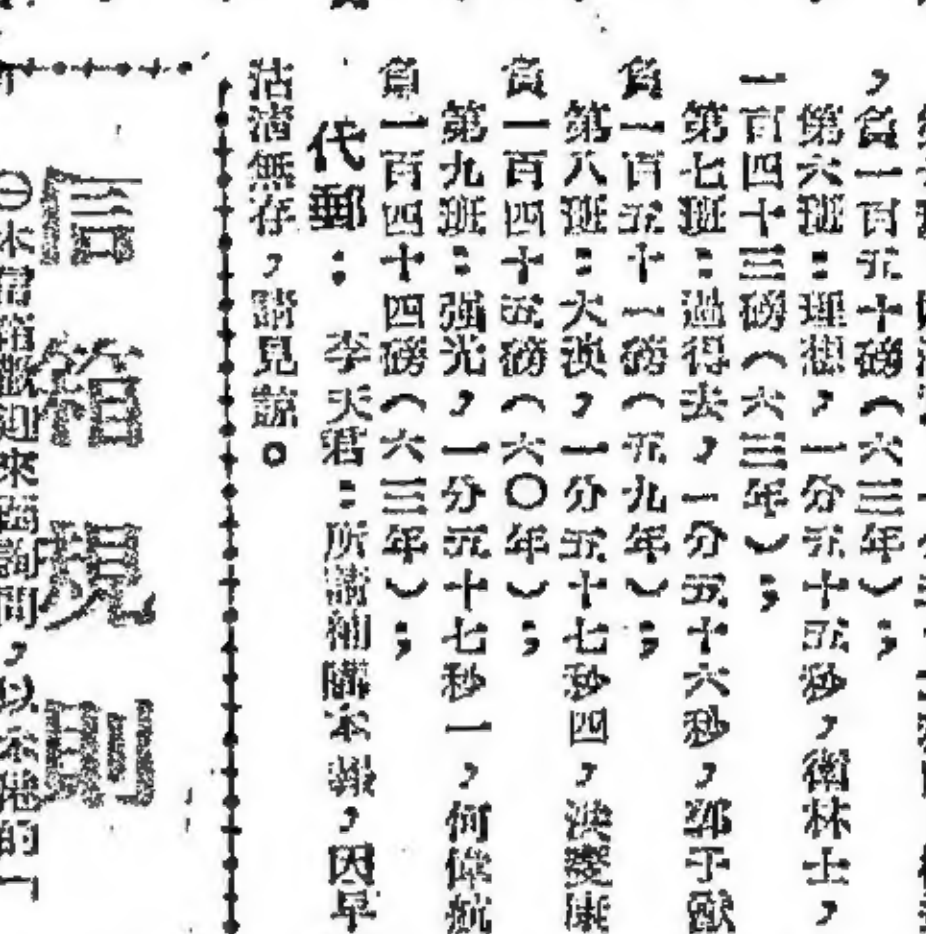 ，負一百五十磅（六三年）；
第六班：理想，一分五十五秒，衛林士，
一百四十三磅（六三年）；
第七班：過得去，一分五十六秒，鄭于猷
負一百五十一磅（五九年）；
第八班：大漁，一分五十七秒四，洪慶康
負一百四十五磅（六〇年）；
第九班：强光，一分五十七秒一，何偉航
負一百四十四磅（六三年）；
代郵：李天君：所請補購本報，因早
沽清無存，請見諒。
信箱規則
本信箱歡迎來函詢問，以本港的「